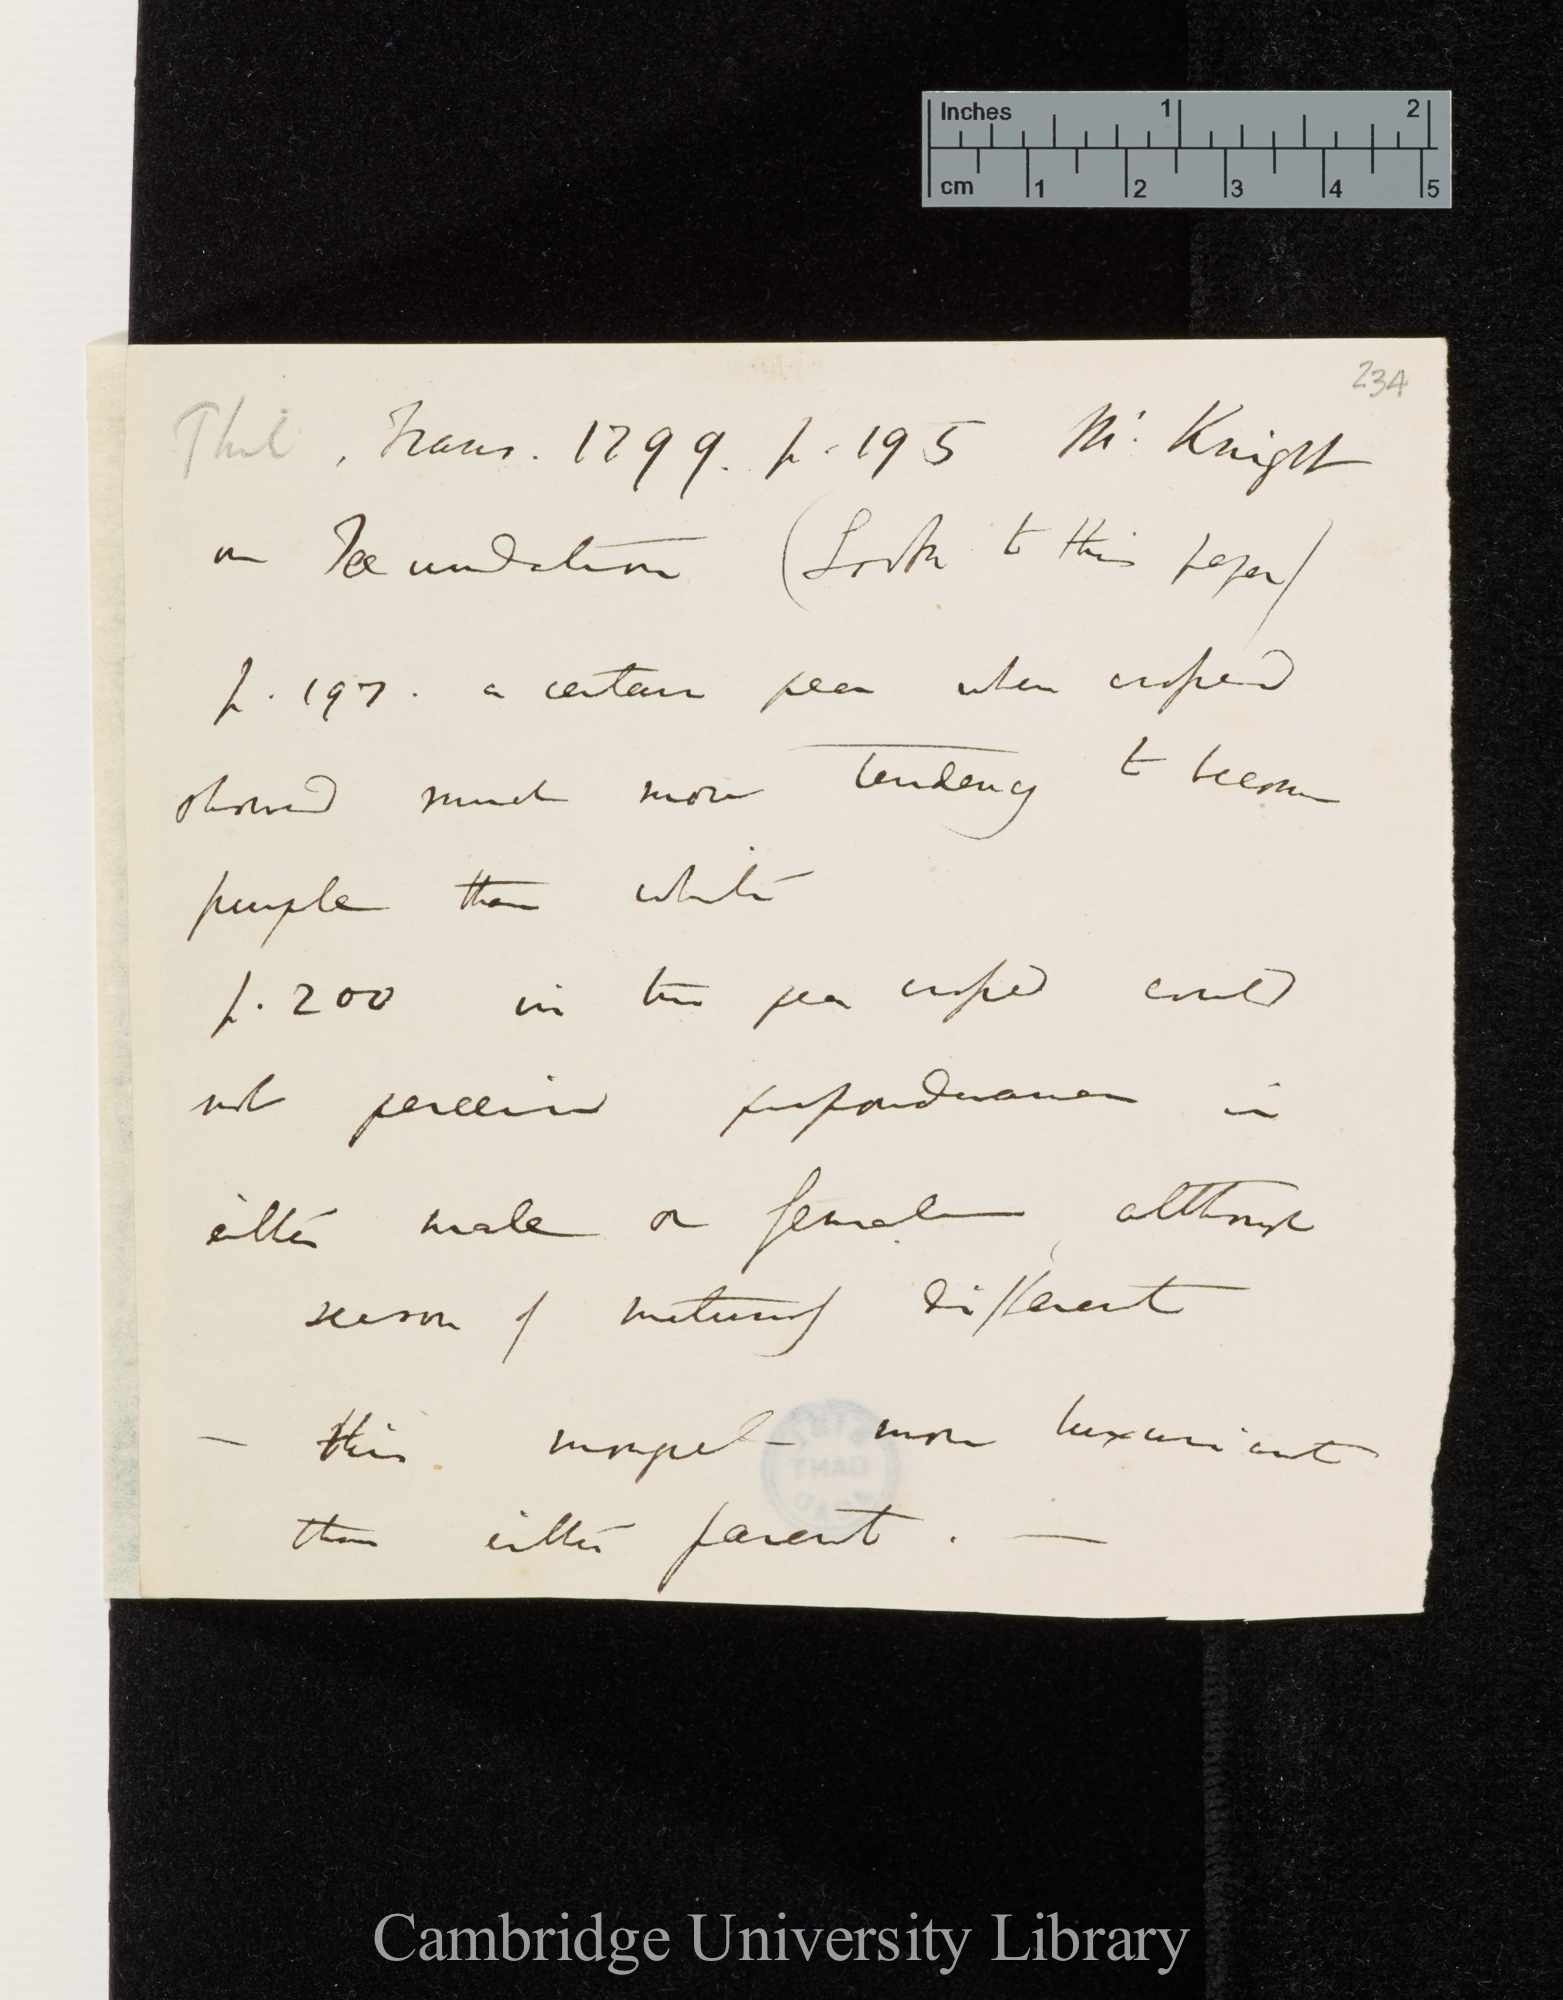 Inches 1 2
cm 1 2 3 4 5
234
Phil, Trans. 1799. p. 195 Mr. Knight
on Fecundation (Look to this paper)
p. 197. a certain pea when crossed
showed much more tendency to become
purple than white
p. 200 in two pea crossed could
not perceive preponderance in
either male or female, although
season of maturity different
— this mongrel — more luxuriant
than either parent. —
Cambridge University Library